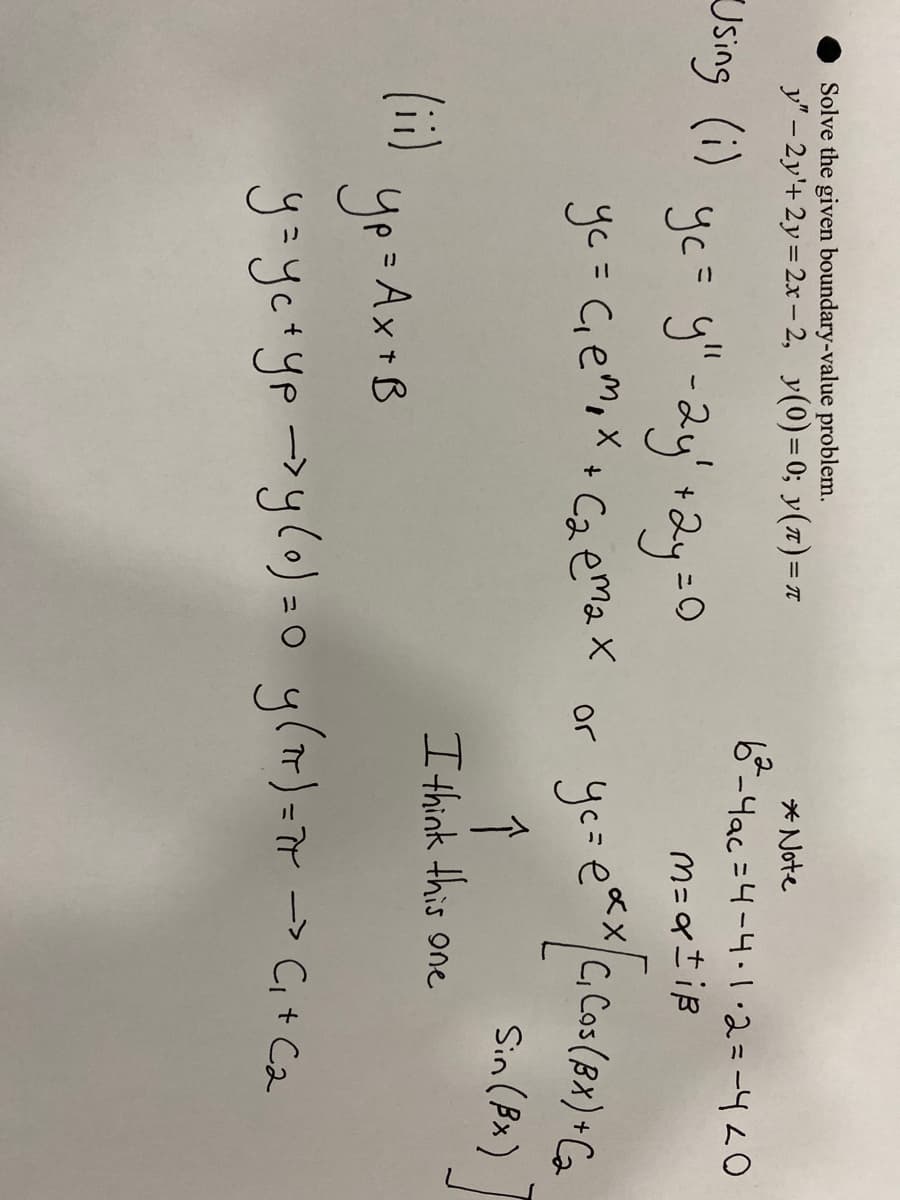 Solve the given boundary-value problem.
y" – 2y'+ 2y = 2x – 2, y(0) = 0; y(π) = π
* Note
b² - 4ac = 4 - 4·1·2 = -4 < 0
m = α ± iβ
Using (i) yc = y" - 2y' + 2y = 0
yc = C₁e^m₁x + C₂e^m₂x or yc = e^αx [C₁Cos(βx) + C₂
Sin(βx)]
↑
I think this one
(ii) yp = Ax + B
y = yc + yp → y(0) = 0 y(π) = π → C₁ + C₂